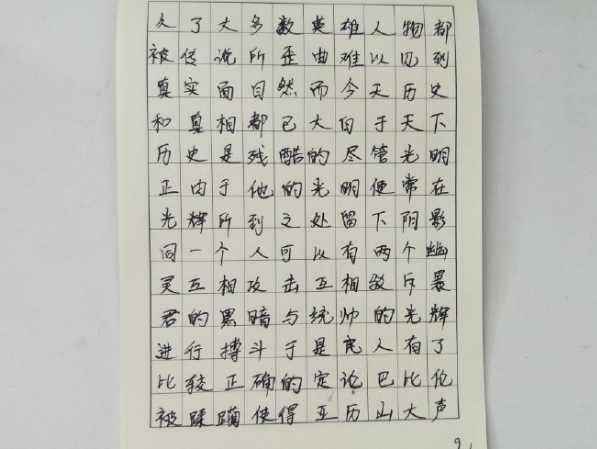 久了大多数英雄人物都
被传说所歪曲难以见到
真实面目然而今天历史
和真相都已大白于天下
历史是残酷的尽管光明
正由于他的光明便常在
光辉所到之处留下阴影
同一个人可以有两个幽
灵互相攻击互相敌斥暴
君的黑暗与统帅的光辉
进行搏斗于是完人有了
比较正确的定论巴比伦
被蹂躏使得亚历山大声